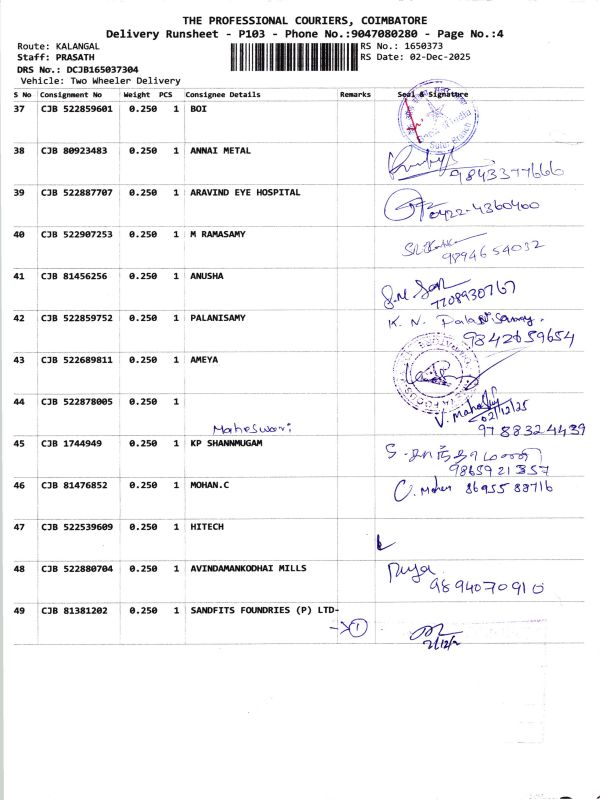 THE PROFESSIONAL COURIERS, COIMBATORE
Delivery Runsheet - P103 - Phone No.:9047080280 - Page No.:4
Route: KALANGAL RS No.: 1650373
Staff: PRASATH RS Date: 02-Dec-2025
DRS No.: DCJB165037304
Vehicle: Two Wheeler Delivery
S No Consignment No Weight PCS Consignee Details Remarks Seal & Signature
37 CJB 522859601 0.250 1 BOI
Sulur Branch
38 CJB 80923483 0.250 1 ANNAI METAL
9843377666
39 CJB 522887707 0.250 1 ARAVIND EYE HOSPITAL
0422-4360400
40 CJB 522907253 0.250 1 M RAMASAMY
9894654032
41 CJB 81456256 0.250 1 ANUSHA
7708930767
42 CJB 522859752 0.250 1 PALANISAMY K. N. Palanisamy.
9842659654
43 CJB 522689811 0.250 1 AMEYA
44 CJB 522878005 0.250 1
V. 02/12/25
Maheswari 9788324439
45 CJB 1744949 0.250 1 KP SHANNMUGAM
9865921357
46 CJB 81476852 0.250 1 MOHAN.C C. Mohan 8695588716
47 CJB 522539609 0.250 1 HITECH
48 CJB 522880704 0.250 1 AVINDAMANKODHAI MILLS
9894070910
49 CJB 81381202 0.250 1 SANDFITS FOUNDRIES (P) LTD-
1
2/12/2